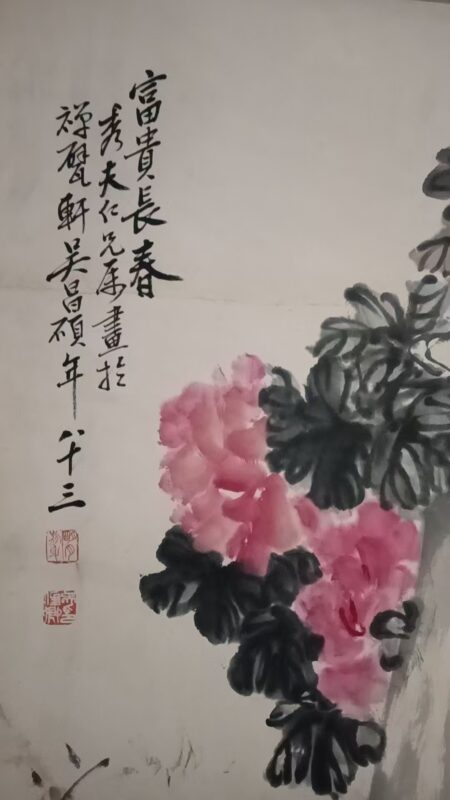 富貴長春
秀夫仁兄属畫於
禪甓軒吴昌碩年八十三